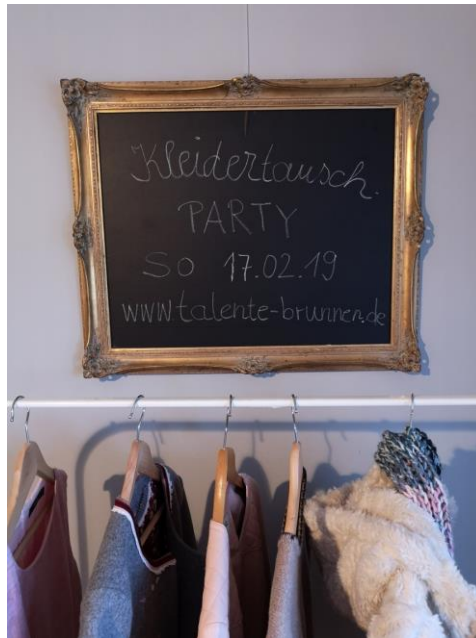 Kleidertausch.
PARTY
So 17.02.19
www.talente-brunnen.de